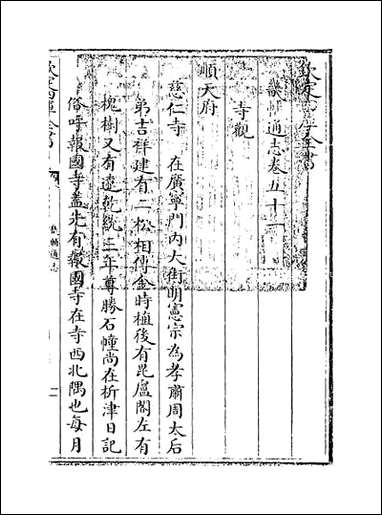 欽定四庫全書
畿輔通志卷五十一
寺觀
順天府
慈仁寺 在廣寧門内大街明憲宗為孝肅周太后
弟吉祥建有二松相傳金時植後有毘盧閣左有
槐樹又有遼乾統三年尊勝石幢尚在析津日記
俗呼報國寺葢先有報國寺在寺西北隅也每月
欽定四庫全書
畿輔通志